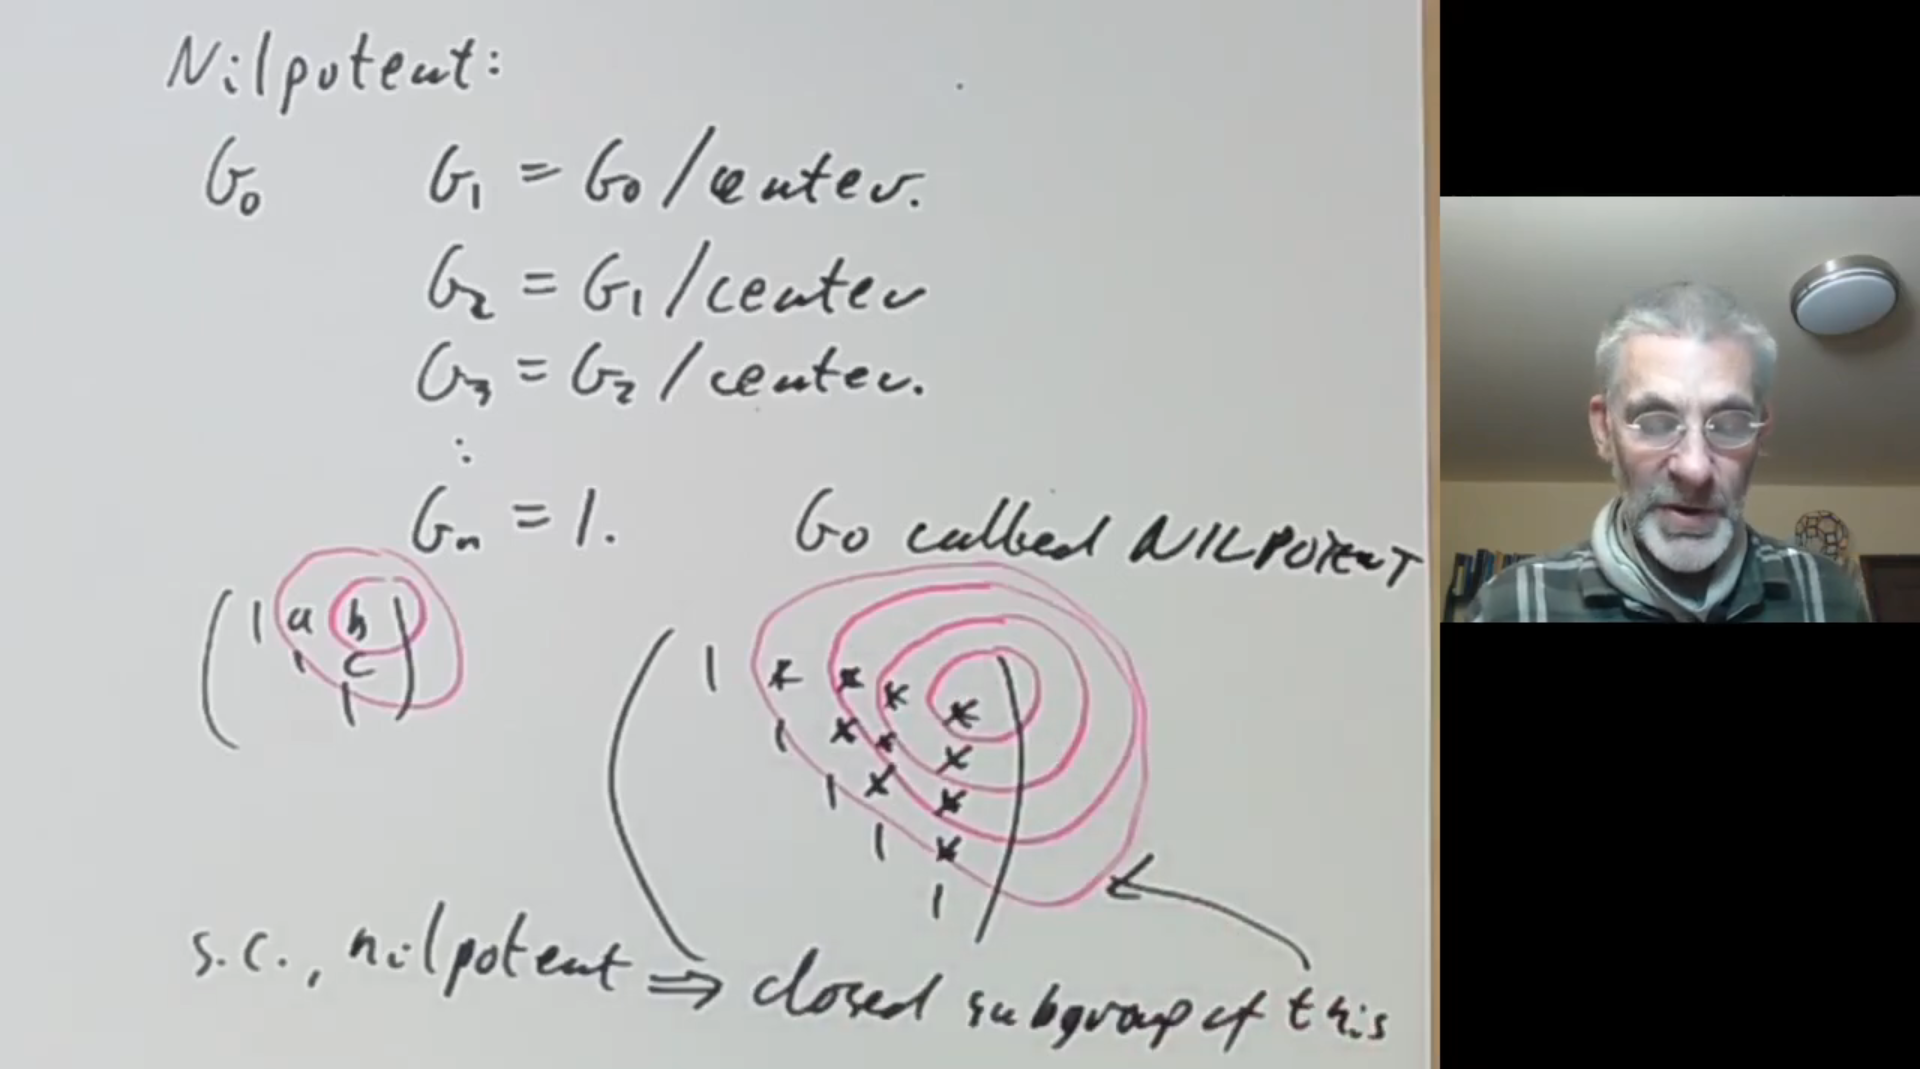 Nilpotent:
G₀ G₁ = G₀ / center.
G₂ = G₁ / center
G₃ = G₂ / center.
⋮
Gₙ = 1. G₀ called NILPOTENT
( 1 a b )
1 c
1
( 1 * * * * )
1 * * *
1 * *
1 *
1
s.c., nilpotent ⇒ closed subgroup of this